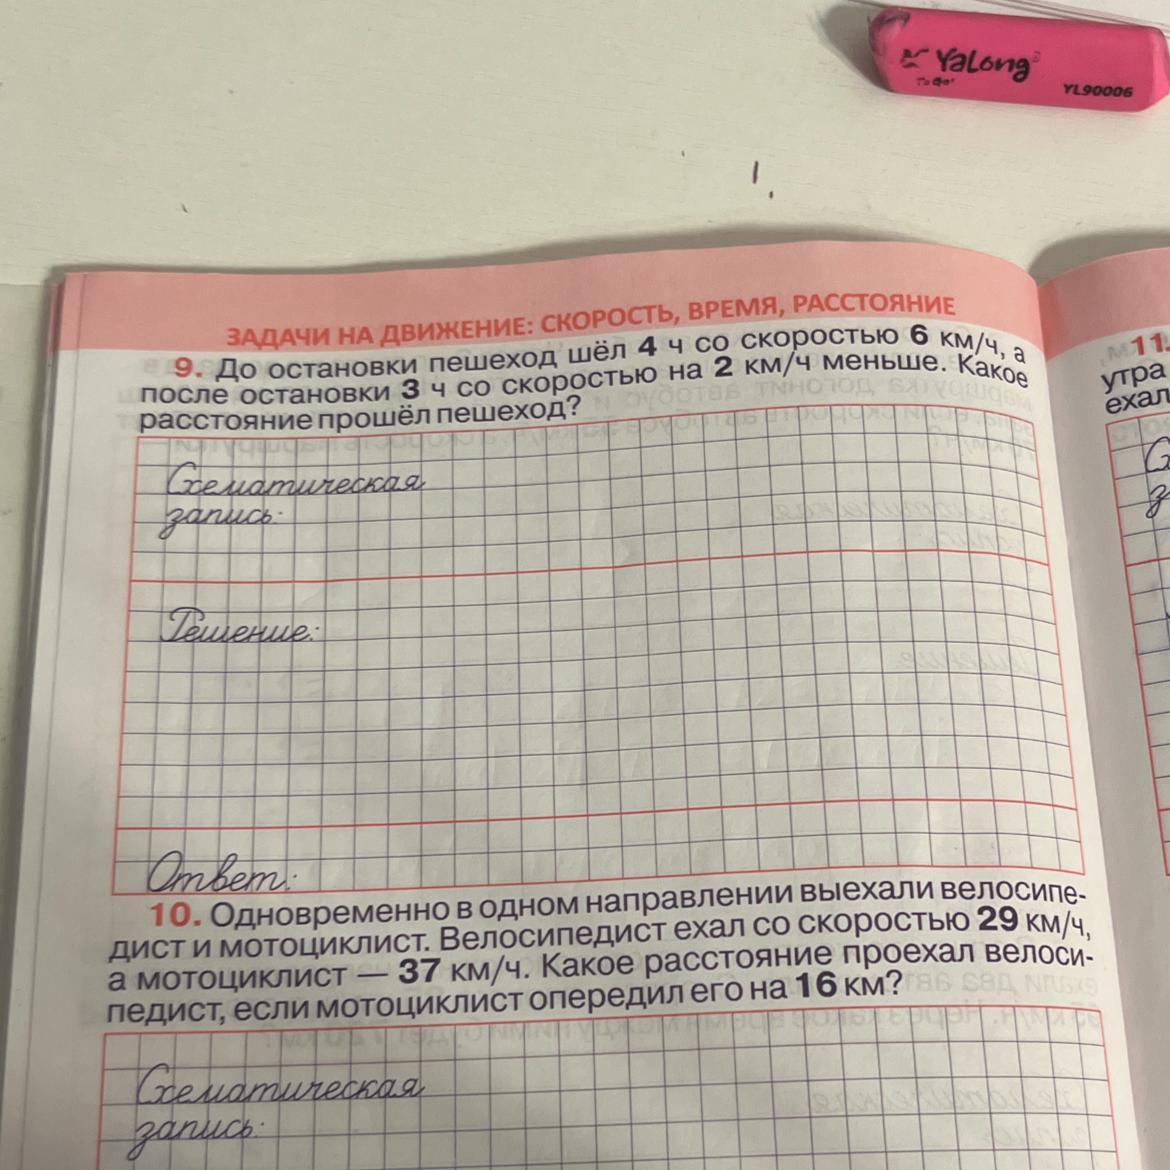 YaLong
YL90006
ЗАДАЧИ НА ДВИЖЕНИЕ: СКОРОСТЬ, ВРЕМЯ, РАССТОЯНИЕ
9. До остановки пешеход шёл 4 ч со скоростью 6 км/ч, а
после остановки 3 ч со скоростью на 2 км/ч меньше. Какое
расстояние прошёл пешеход?
Схематическая
запись:
Решение:
Ответ:
10. Одновременно в одном направлении выехали велосипе-
дист и мотоциклист. Велосипедист ехал со скоростью 29 км/ч,
а мотоциклист — 37 км/ч. Какое расстояние проехал велоси-
педист, если мотоциклист опередил его на 16 км?
Схематическая
запись:
11.
утра
ехал